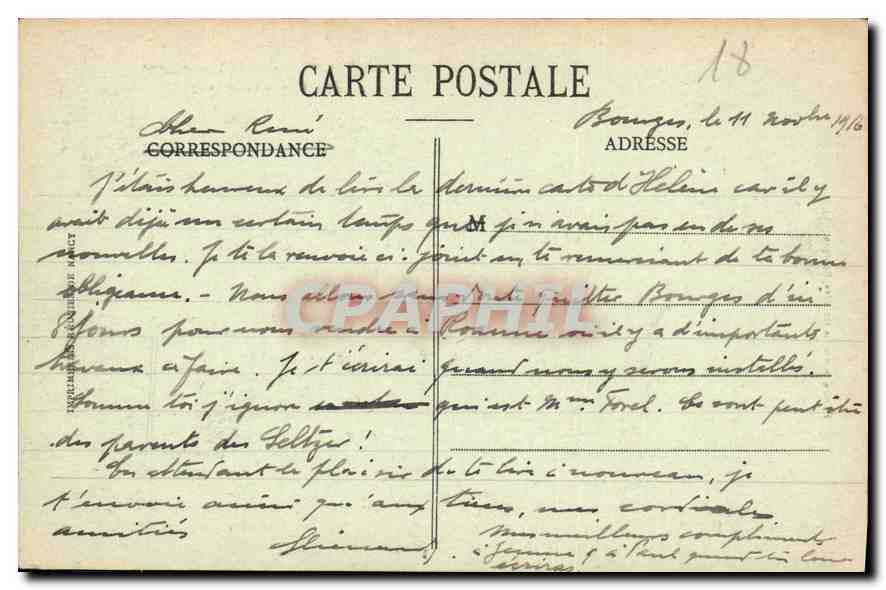 18
CARTE POSTALE
Cher René
Bourges, le 11 Novbre 1916
CORRESPONDANCE
ADRESSE
J'étais heureux de lire la dernière carte d'Hélène car il y
avait déjà un certain temps que je n'avais pas eu de ses
M
nouvelles. Je te la renvoie ci-joint en te remerciant de ta bonne
obligeance. - Nous allons sans doute quitter Bourges d'ici
8 jours pour nous rendre à Roanne où il y a d'importants
travaux à faire. Je t'écrirai quand nous y serons installés.
Comme toi j'ignore qui est Mme Forel. Ce sont peut être
des parents des Seltzer!
En attendant le plaisir de te lire à nouveau, je
t'envoie ainsi qu'aux tiens, mes cordiales
amitiés
Mes meilleurs compliments
à Jeanne & à Paul quand tu leur
écriras
IMPRIMERIES RÉUNIES DE NANCY
CPAPHIL